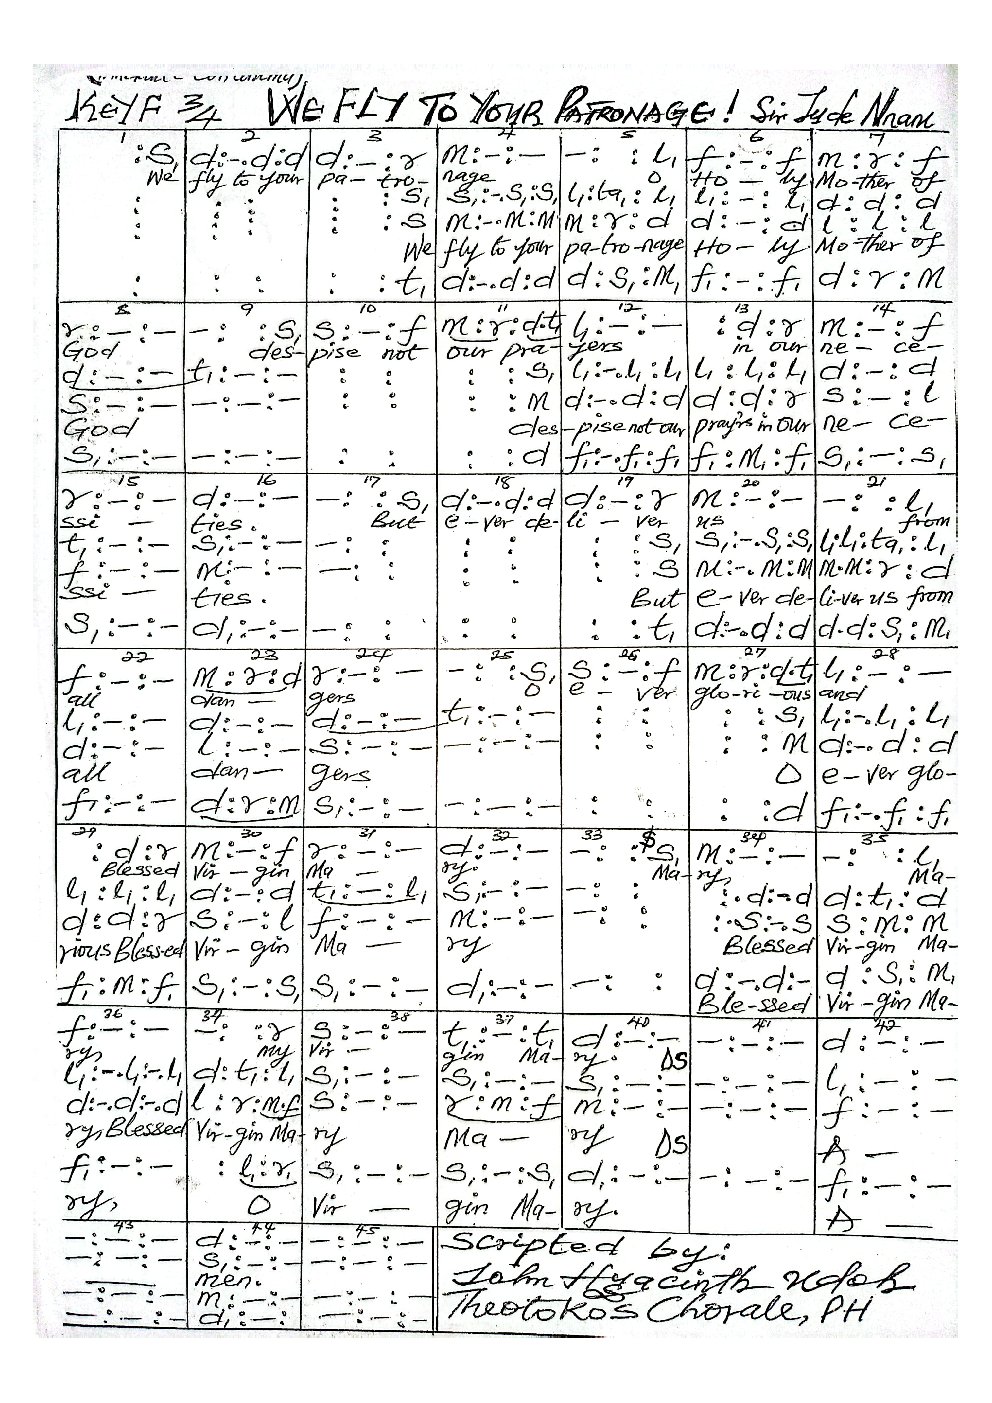 Key F 3/4 WE FLY TO YOUR PATRONAGE! Sir Jude Nnam
1 2 3 4 5 6 7
:S, d:-.d:d d:-:r m:-:- -: :l, f:-:f m:r:f
We fly to your pa- tro- nage O Ho - ly Mo-ther of
: : : : : :S, S,:-.S,:S, l,:ta,:l, l,:-:l, d:d:d
: : : : : :S m:-.m:m m:r:d d:-:d l:l:l
We fly to your pa-tro-nage Ho - ly Mo-ther of
: : : : : :t, d:-.d:d d:S,:m, f,:-:f, d:r:m
8 9 10 11 12 13 14
r:-:- -: :S, S:-:f m:r:d.t, l,:-:- :d:r m:-:f
God des- pise not our pra- yers in our ne- ce-
d:-:- t,:-:- : : : :S, l,:-.l,:l, l,:l,:l, d:-:d
S:-:- -:-:- : : : :m d:-.d:d d:d:r S:-:l
God des-pise not our pray'rs in our ne- ce-
S,:-:- -:-:- : : : :d f,:-.f,:f, f,:m,:f, S,:-:S,
15 16 17 18 19 20 21
r:-:- d:-:- -: :S, d:-.d:d d:-:r m:-:- -: :l,
ssi - ties. But e-ver de- li - ver us from
t,:-:- S,:-:- -: : : : : :S, S,:-.S,:S, l,.l,:ta,:l,
f:-:- m:-:- -: : : : : :S m:-.m:m m.m:r:d
ssi - ties. But e-ver de- li-ver us from
S,:-:- d,:-:- -: : : : : :t, d:-.d:d d.d:S,:m,
22 23 24 25 26 27 28
f:-:- m:r:d r:-:- -: :S, S:-:f m:r:d.t, l,:-:-
all dan- gers O e - ver glo-ri-ous and
l,:-:- d:-:- d:-:- t,:-:- : : : :S, l,:-.l,:l,
d:-:- l:-:- S:-:- -:-:- : : : :m d:-.d:d
all dan- gers O e-ver glo-
f,:-:- d:r:m S,:-:- -:-:- : : : :d f,:-.f,:f,
29 30 31 32 33 34 35
:d:r m:-:f r:-:- d:-:- -: :S, m:-:- -: :l,
Blessed Vir-gin Ma - ry. Ma- ry, Ma-
l,:l,:l, d:-:d t,:-:l, S,:-:- -: : :.d:-d d:t,:d
d:d:r S:-:l f:-:- m:-:- -: : :.S:-S S:m:m
rious Blessed Vir-gin Ma - ry Blessed Vir-gin Ma-
f,:m:f, S,:-:S, S,:-:- d,:-:- -: : d:-.d:- d:S,:m,
Ble-ssed Vir-gin Ma-
36 34 38 37 40 41 42
f:-:- -: :r S:-:- t,:-:t, d:-:- -:-:- d:-:-
ry, my Vir - gin Ma- ry. DS
l,:-.l,:-.l, d:t,:l, S,:-:- S,:-:- S,:-:- -:-:- l,:-:-
d:-.d:-.d l:r:m.f S:-:- r:m:f m:-:- -:-:- f:-:-
ry, Blessed Vir-gin Ma- ry Ma - ry DS A -
f,:-:- :l,:r, S,:-:- S,:-:S, d,:-:- -:-:- f,:-:-
ry, O Vir - gin Ma- ry. A -
43 44 45
-:-:- d:-:- -:-:-
-:-:- S,:-:- -:-:-
men.
-:-:- m:-:- -:-:-
-:-:- d,:-:- -:-:-
Scripted by:
John Hyacinth Udoh
Theotokos Chorale, PH